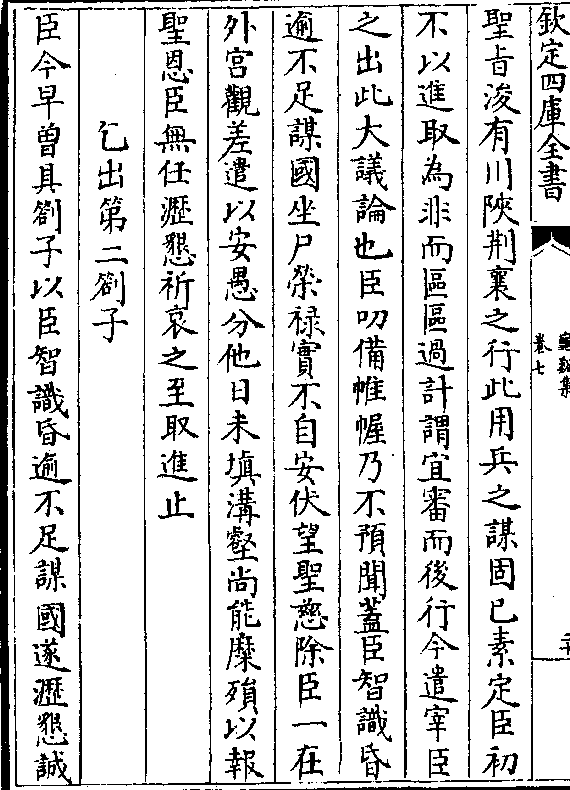 欽定四庫全書
卷七
聖㫖浚有川陜荆襄之行此用兵之謀固已素定臣初
不以進取為非而區區過計謂宜審而後行今遣宰臣
之出此大議論也臣叨備帷幄乃不預聞蓋臣智識昏
逾不足謀國坐尸榮禄實不自安伏望聖慈除臣一在
外宫觀差遣以安愚分他日未填溝壑尚能糜殞以報
聖恩臣無任瀝懇祈哀之至取進止
乞出第二劄子
臣今早曽具劄子以臣智識昏逾不足謀國遂瀝懇誠